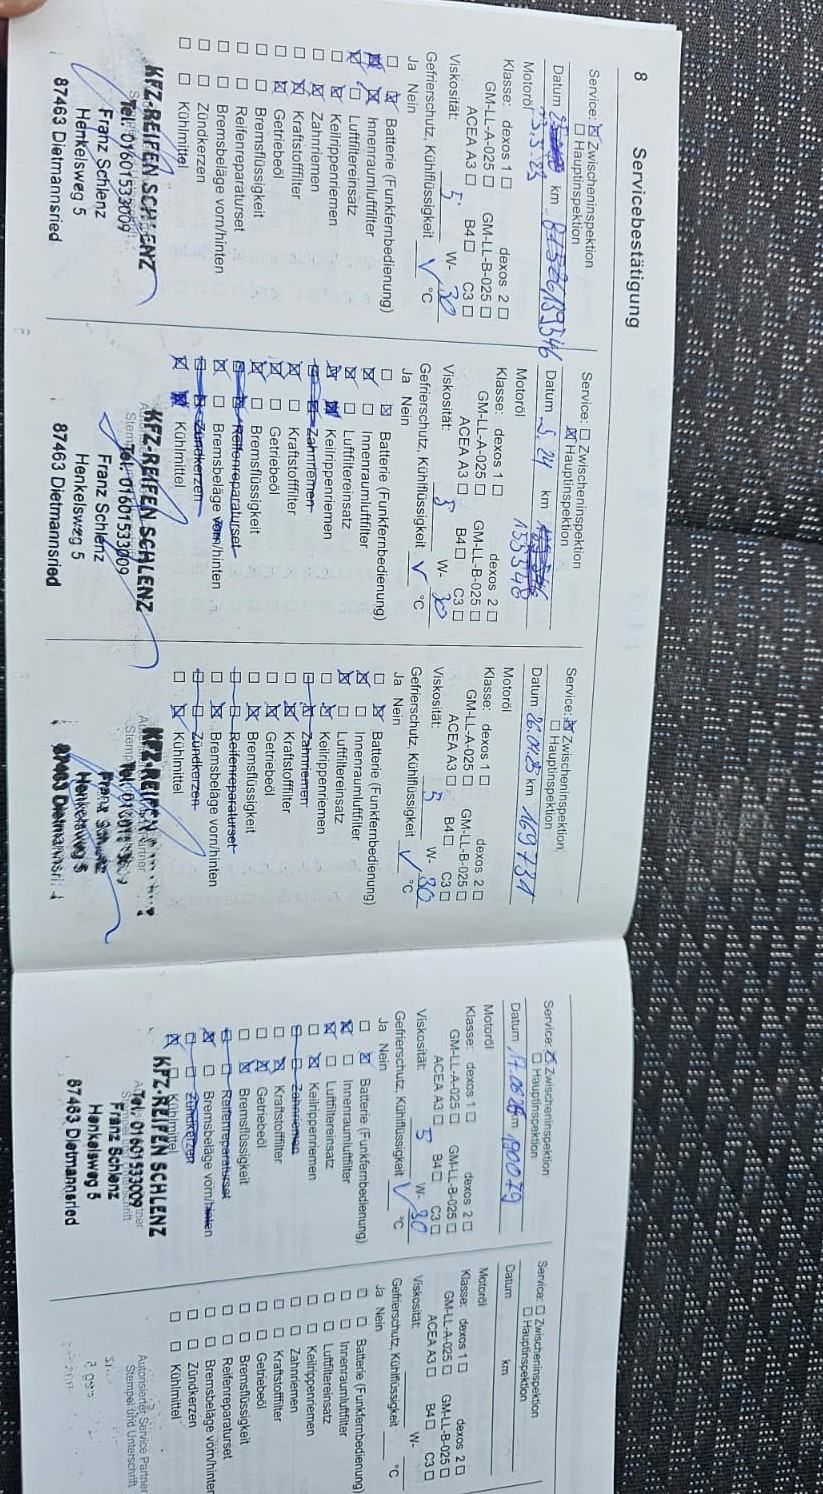 8
Servicebestätigung
Service: ☒ Zwischeninspektion
☐ Hauptinspektion
Datum 13.5.23 km
Motoröl
Klasse: dexos 1 ☐ dexos 2 ☐
GM-LL-A-025 ☐ GM-LL-B-025 ☐
ACEA A3 ☐ B4 ☐ C3 ☐
Viskosität: 5 W- 30
Gefrierschutz, Kühlflüssigkeit √ °C
Ja Nein
☐ ☒ Batterie (Funkfernbedienung)
Innenraumluftfilter
☒ ☐ Luftfiltereinsatz
☐ ☒ Keilrippenriemen
☐ ☒ Zahnriemen
☐ ☒ Kraftstofffilter
☐ ☒ Getriebeöl
☐ ☐ Bremsflüssigkeit
☐ ☐ Reifenreparaturset
☐ ☐ Bremsbeläge vorn/hinten
☐ ☐ Zündkerzen
☐ ☐ Kühlmittel
KFZ-REIFEN SCHLENZ
Tel. 01601533009
Franz Schlenz
Henkelsweg 5
87463 Dietmannsried
Service: ☐ Zwischeninspektion
☒ Hauptinspektion
Datum 5. 24 km 155548
Motoröl
Klasse: dexos 1 ☐ dexos 2 ☐
GM-LL-A-025 ☐ GM-LL-B-025 ☐
ACEA A3 ☐ B4 ☐ C3 ☐
Viskosität: 5 W- 30
Gefrierschutz, Kühlflüssigkeit √ °C
Ja Nein
☐ ☒ Batterie (Funkfernbedienung)
☒ ☐ Innenraumluftfilter
☒ ☐ Luftfiltereinsatz
Keilrippenriemen
Zahnriemen
☒ ☐ Kraftstofffilter
☒ ☐ Getriebeöl
☒ ☐ Bremsflüssigkeit
Reifenreparaturset
☒ ☐ Bremsbeläge vorn/hinten
Zündkerzen
Kühlmittel
KFZ-REIFEN SCHLENZ
Tel. 01601533009
Franz Schlenz
Henkelsweg 5
87463 Dietmannsried
Service: ☒ Zwischeninspektion
☐ Hauptinspektion
Datum 26.04.25 km 169731
Motoröl
Klasse: dexos 1 ☐ dexos 2 ☐
GM-LL-A-025 ☐ GM-LL-B-025 ☐
ACEA A3 ☐ B4 ☐ C3 ☐
Viskosität: 5 W- 30
Gefrierschutz, Kühlflüssigkeit √ °C
Ja Nein
☐ ☒ Batterie (Funkfernbedienung)
☒ ☐ Innenraumluftfilter
☒ ☐ Luftfiltereinsatz
☐ ☒ Keilrippenriemen
Zahnriemen
☐ ☒ Kraftstofffilter
☐ ☒ Getriebeöl
☐ ☒ Bremsflüssigkeit
Reifenreparaturset
☐ ☒ Bremsbeläge vorn/hinten
Zündkerzen
☐ ☒ Kühlmittel
KFZ-REIFEN
Henkelsweg 5
Service: ☒ Zwischeninspektion
☐ Hauptinspektion
Datum 17.06 km 190079
Motoröl
Klasse: dexos 1 ☐ dexos 2 ☐
GM-LL-A-025 ☐ GM-LL-B-025 ☐
ACEA A3 ☐ B4 ☐ C3 ☐
Viskosität: 5 W- 30
Gefrierschutz, Kühlflüssigkeit √ °C
Ja Nein
☐ ☒ Batterie (Funkfernbedienung)
☒ ☐ Innenraumluftfilter
☒ ☐ Luftfiltereinsatz
☐ ☒ Keilrippenriemen
Zahnriemen
☐ ☒ Kraftstofffilter
☐ ☒ Getriebeöl
☐ ☒ Bremsflüssigkeit
Reifenreparaturset
☒ ☐ Bremsbeläge vorn/hinten
Zündkerzen
☒ ☐ Kühlmittel
KFZ-REIFEN SCHLENZ
Tel. 01601533009
Franz Schlenz
Henkelsweg 5
87463 Dietmannsried
Service: ☐ Zwischeninspektion
☐ Hauptinspektion
Datum km
Motoröl
Klasse: dexos 1 ☐ dexos 2 ☐
GM-LL-A-025 ☐ GM-LL-B-025 ☐
ACEA A3 ☐ B4 ☐ C3 ☐
Viskosität: W-
Gefrierschutz, Kühlflüssigkeit °C
Ja Nein
☐ ☐ Batterie (Funkfernbedienung)
☐ ☐ Innenraumluftfilter
☐ ☐ Luftfiltereinsatz
☐ ☐ Keilrippenriemen
☐ ☐ Zahnriemen
☐ ☐ Kraftstofffilter
☐ ☐ Getriebeöl
☐ ☐ Bremsflüssigkeit
☐ ☐ Reifenreparaturset
☐ ☐ Bremsbeläge vorn/hinten
☐ ☐ Zündkerzen
☐ ☐ Kühlmittel
Autorisierter Service Partner
Stempel und Unterschrift